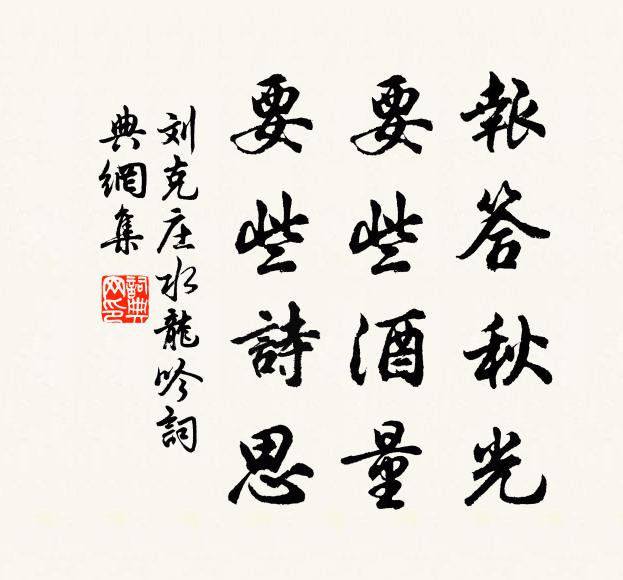 報答秋光
要些酒量
要些詩思
刘克庄水龍吟詞
典網集
詞典网印